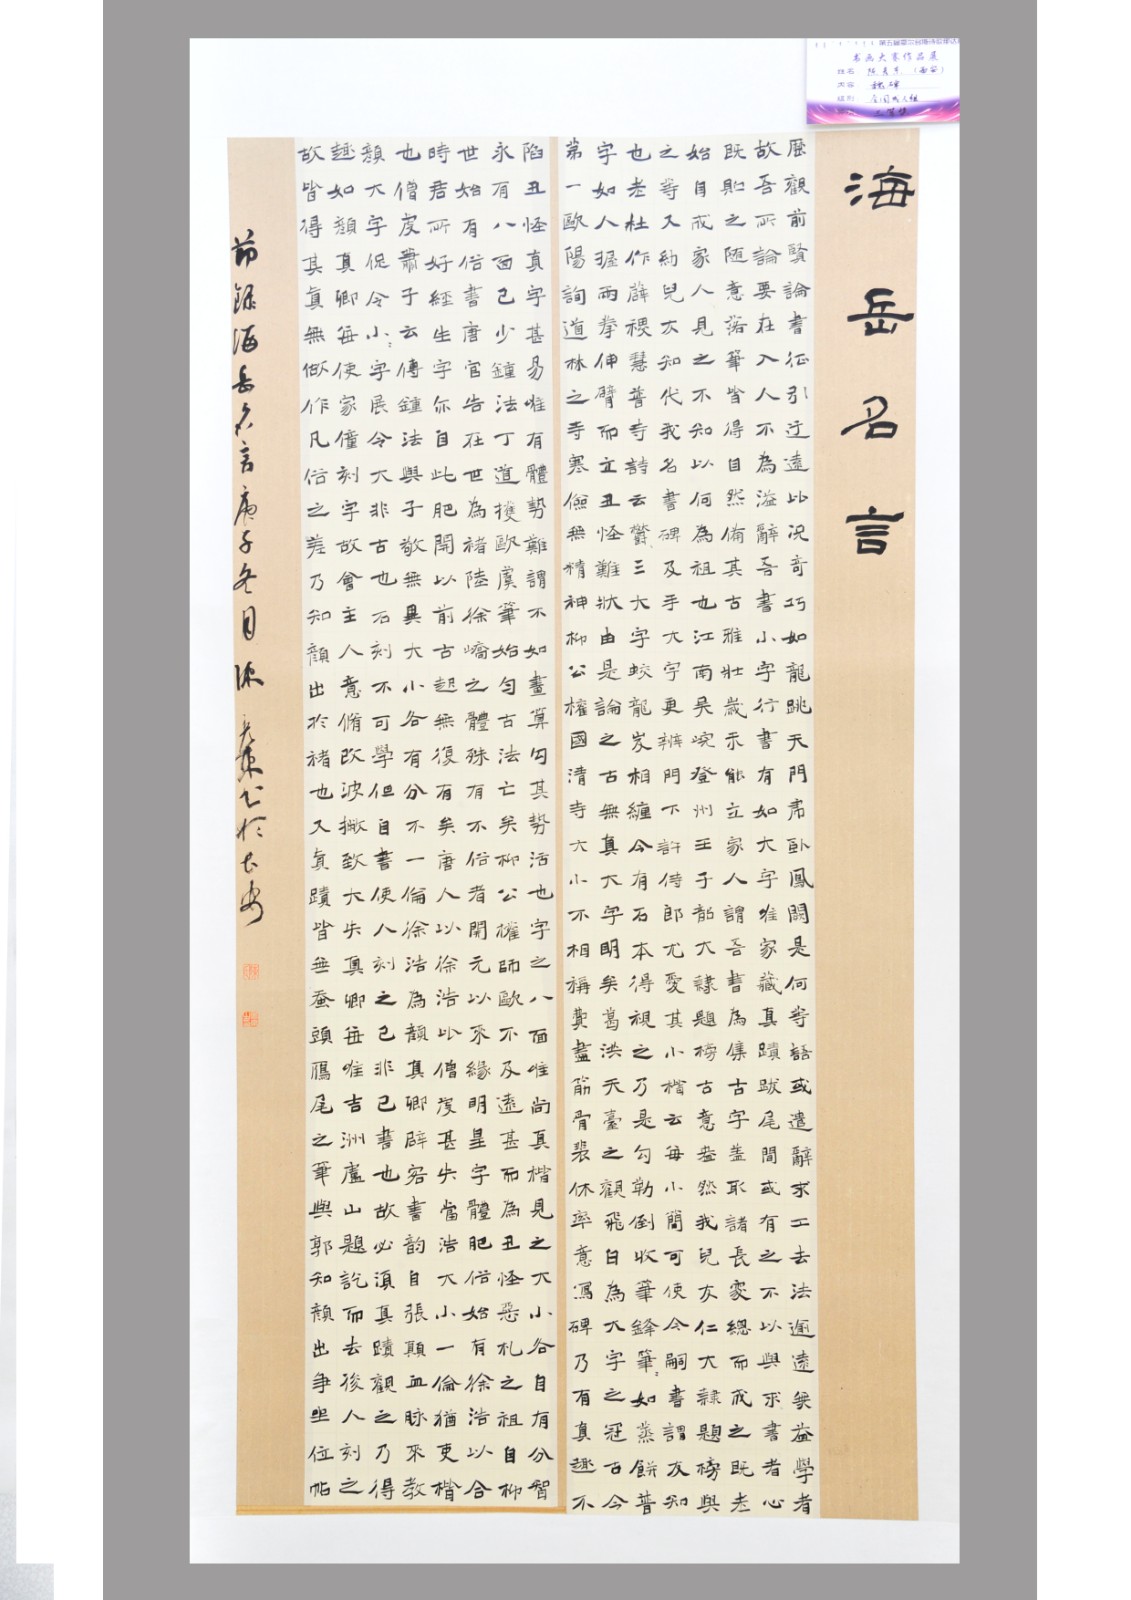 海岳名言
歷觀前賢論書征引迂遠比況奇巧如龍跳天門虎臥鳳闕是何等語或遣辭求工去法逾遠無益學者
故吾所論要在入人不為溢辭吾書小字行書有如大字唯家藏真蹟跋尾間或有之不以與求書者心
既貯之隨意落筆皆得自然備其古雅壯歲未能立家人謂吾書為集古字蓋取諸長處總而成之既老
始自成家人見之不知以何為祖也江南吳皖登州王子韶大隸題榜古意盎然我兒友仁大隸題榜與
之等又幼兒友知代我名書碑及手大字更辨門下許侍郎尤愛其小楷云每小簡可使令嗣書謂友知
也老杜作薛稷慧普寺詩云鬱〻三大字蛟龍岌相纏今有石本得視之乃是勾勒倒收筆鋒筆〻如蒸餅普
字如人握兩拳伸臂而立丑怪難狀由是論之古無真大字明矣葛洪天臺之觀飛白為大字之冠古今
第一歐陽詢道林之寺寒儉無精神柳公權國清寺大小不相稱費盡筋骨裴休率意寫碑乃有真趣不
陷丑怪真字甚易唯有體勢難謂不如畫算勾其勢活也字之八面唯尚真楷見之大小各自有分智
永有八面已少鐘法丁道護歐虞筆始勻古法亡矣柳公權師歐不及遠甚而為丑怪惡札之祖自柳
世始有俗書唐官告在世為褚陸徐嶠之體殊有不俗者開元以來緣明皇字體肥俗始有徐浩以合
時君所好經生字亦自此肥開以前古起無復有矣唐人以徐浩比僧虔甚失當浩大小一倫猶吏楷
也僧虔蕭子云傳鐘法與子敬無異大小各有分不一倫徐浩為顏真卿辟客書韵自張顛血脉來教
顏大字促令小〻字展令大非古也石刻不可學但自書使人刻之已非己書也故必須真蹟觀之乃得
趣如顏真卿每使家僮刻字故會主人意脩改波撇致大失真卿每唯吉洲廬山題訖而去後人刻之
故皆得其真無做作凡俗之差乃知顏出於褚也又真蹟皆無蚕頭鴈尾之筆與郭知顏出争坐位帖
節錄海岳名言庚子冬月陳
書於長安
书画大赛作品展
姓名
内容 魏碑
组别 全国成人组